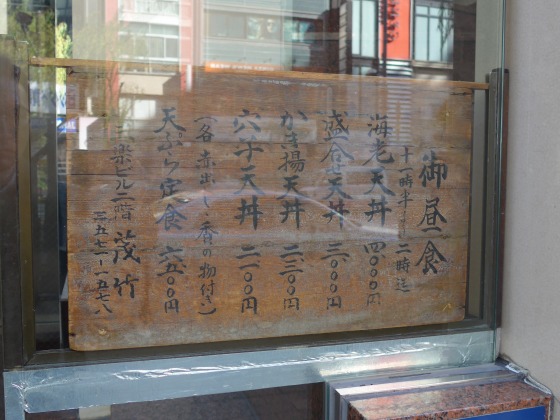 御昼食
十一時半より二時迄
海老天丼 四、〇〇〇円
盛合せ天丼 三、〇〇〇円
かき揚天丼 二、三〇〇円
穴子天丼 二、一〇〇円
(各赤出し・香の物付き)
天ぷら定食 六、五〇〇円
三楽ビル二階 茂竹
三五七一-一五七八